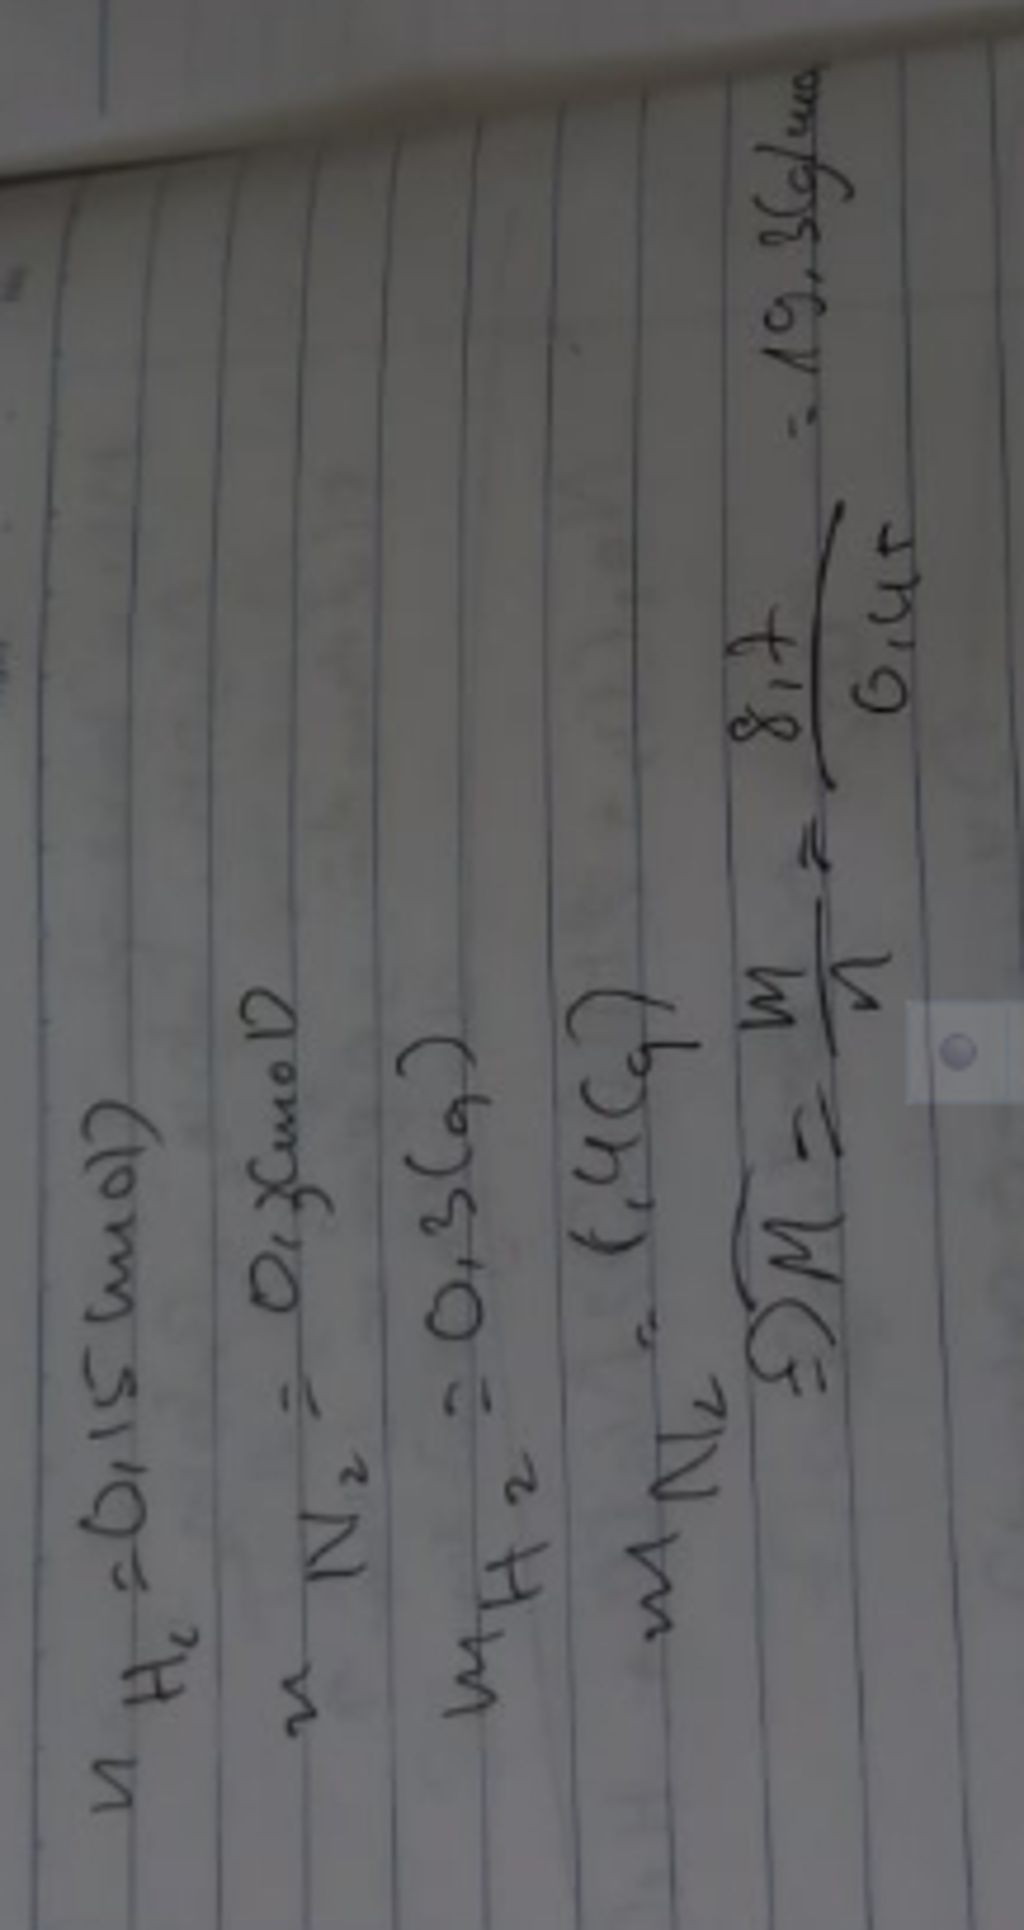 n H₂ = 0,15 (mol)
n N₂ = 0,3 (mol)
m H₂ = 0,3 (g)
m N₂ = 8,4 (g)
=> M̅ = m/n = 8,7/0,45 = 19,3 (g/mo